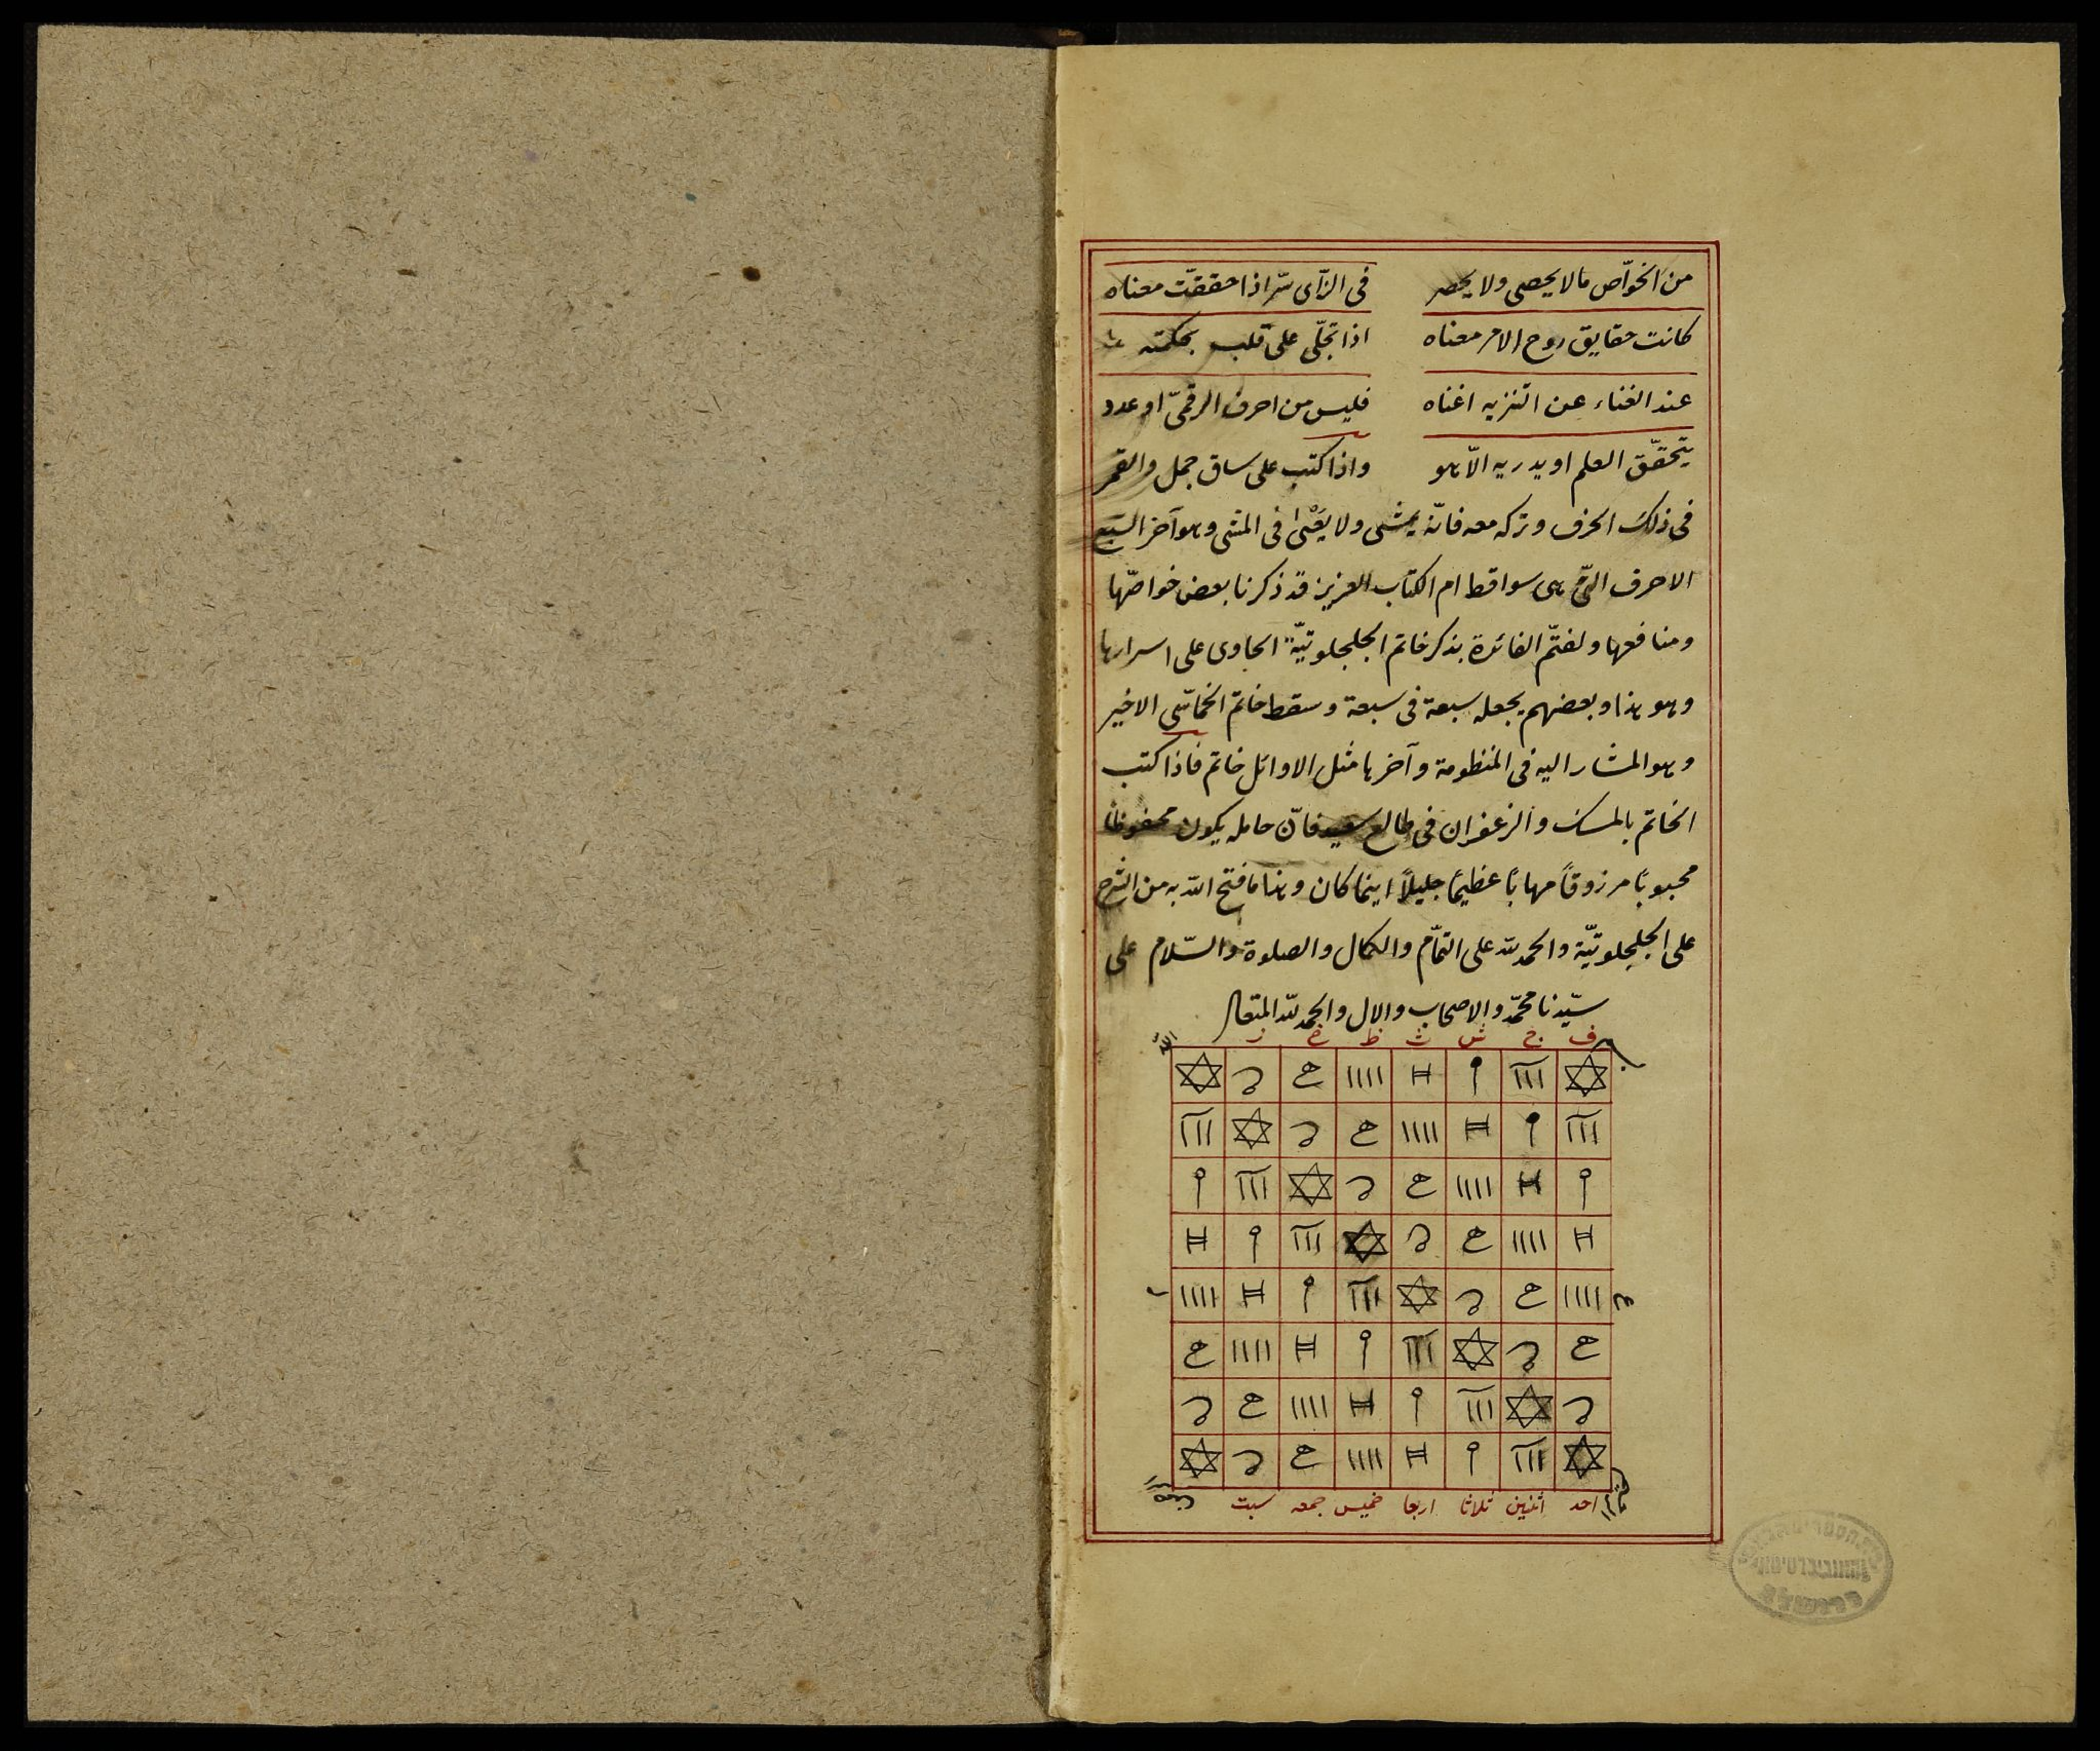 من الخوّاص مالا يحصى ولا يحصر في الرّاى سّر اذا حققّت معناه
كانت حقايق روح الامر معناه اذا تجلّى على قلب بحكمته
عند الغناء عن التنزيه اغناه فليس من احرف الرقمىّ او عدد
يتحقّق العلم او يدريه الاّ هو واذا كتب على ساق جمل والقمر
فى ذلك الحرف وتركه معه فانّه يمشى ولا يَعْىٰ فى المشى وهو آخر السّبع
الاحرف التّى هى سواقط ام الكتاب العزيز قد ذكرنا بعض خواصّها
ومنافعها ولختمّ الفائدة بذكر خاتم الجلجلوتيّة الحاوى على اسرارها
وهو هذا وبعضهم يجعله سبعة فى سبعة وسقط خاتم الخماسّى الاخير
وهو المشار اليه فى المنظومة وآخرها مثل الاوائل خاتم فاذا كتب
الخاتم بالمسك والزعفران فى طالع سعيد فانّ حامله يكون محفوظًا
محبوبًا مرزوقاً مهابًا عظيمًا جليلاً اينما كان وهذا ما فتح الله به من الشرح
على الجلجلوتيّة والحمد لله على التمّام والكمال والصلوة والسّلام على
سيّدنا محمّد والاصحاب والال والحمد لله المتعال
ف ج ش ث ظ خ ز
احد اثنين ثلاثا اربعا خميس جمعه سبت